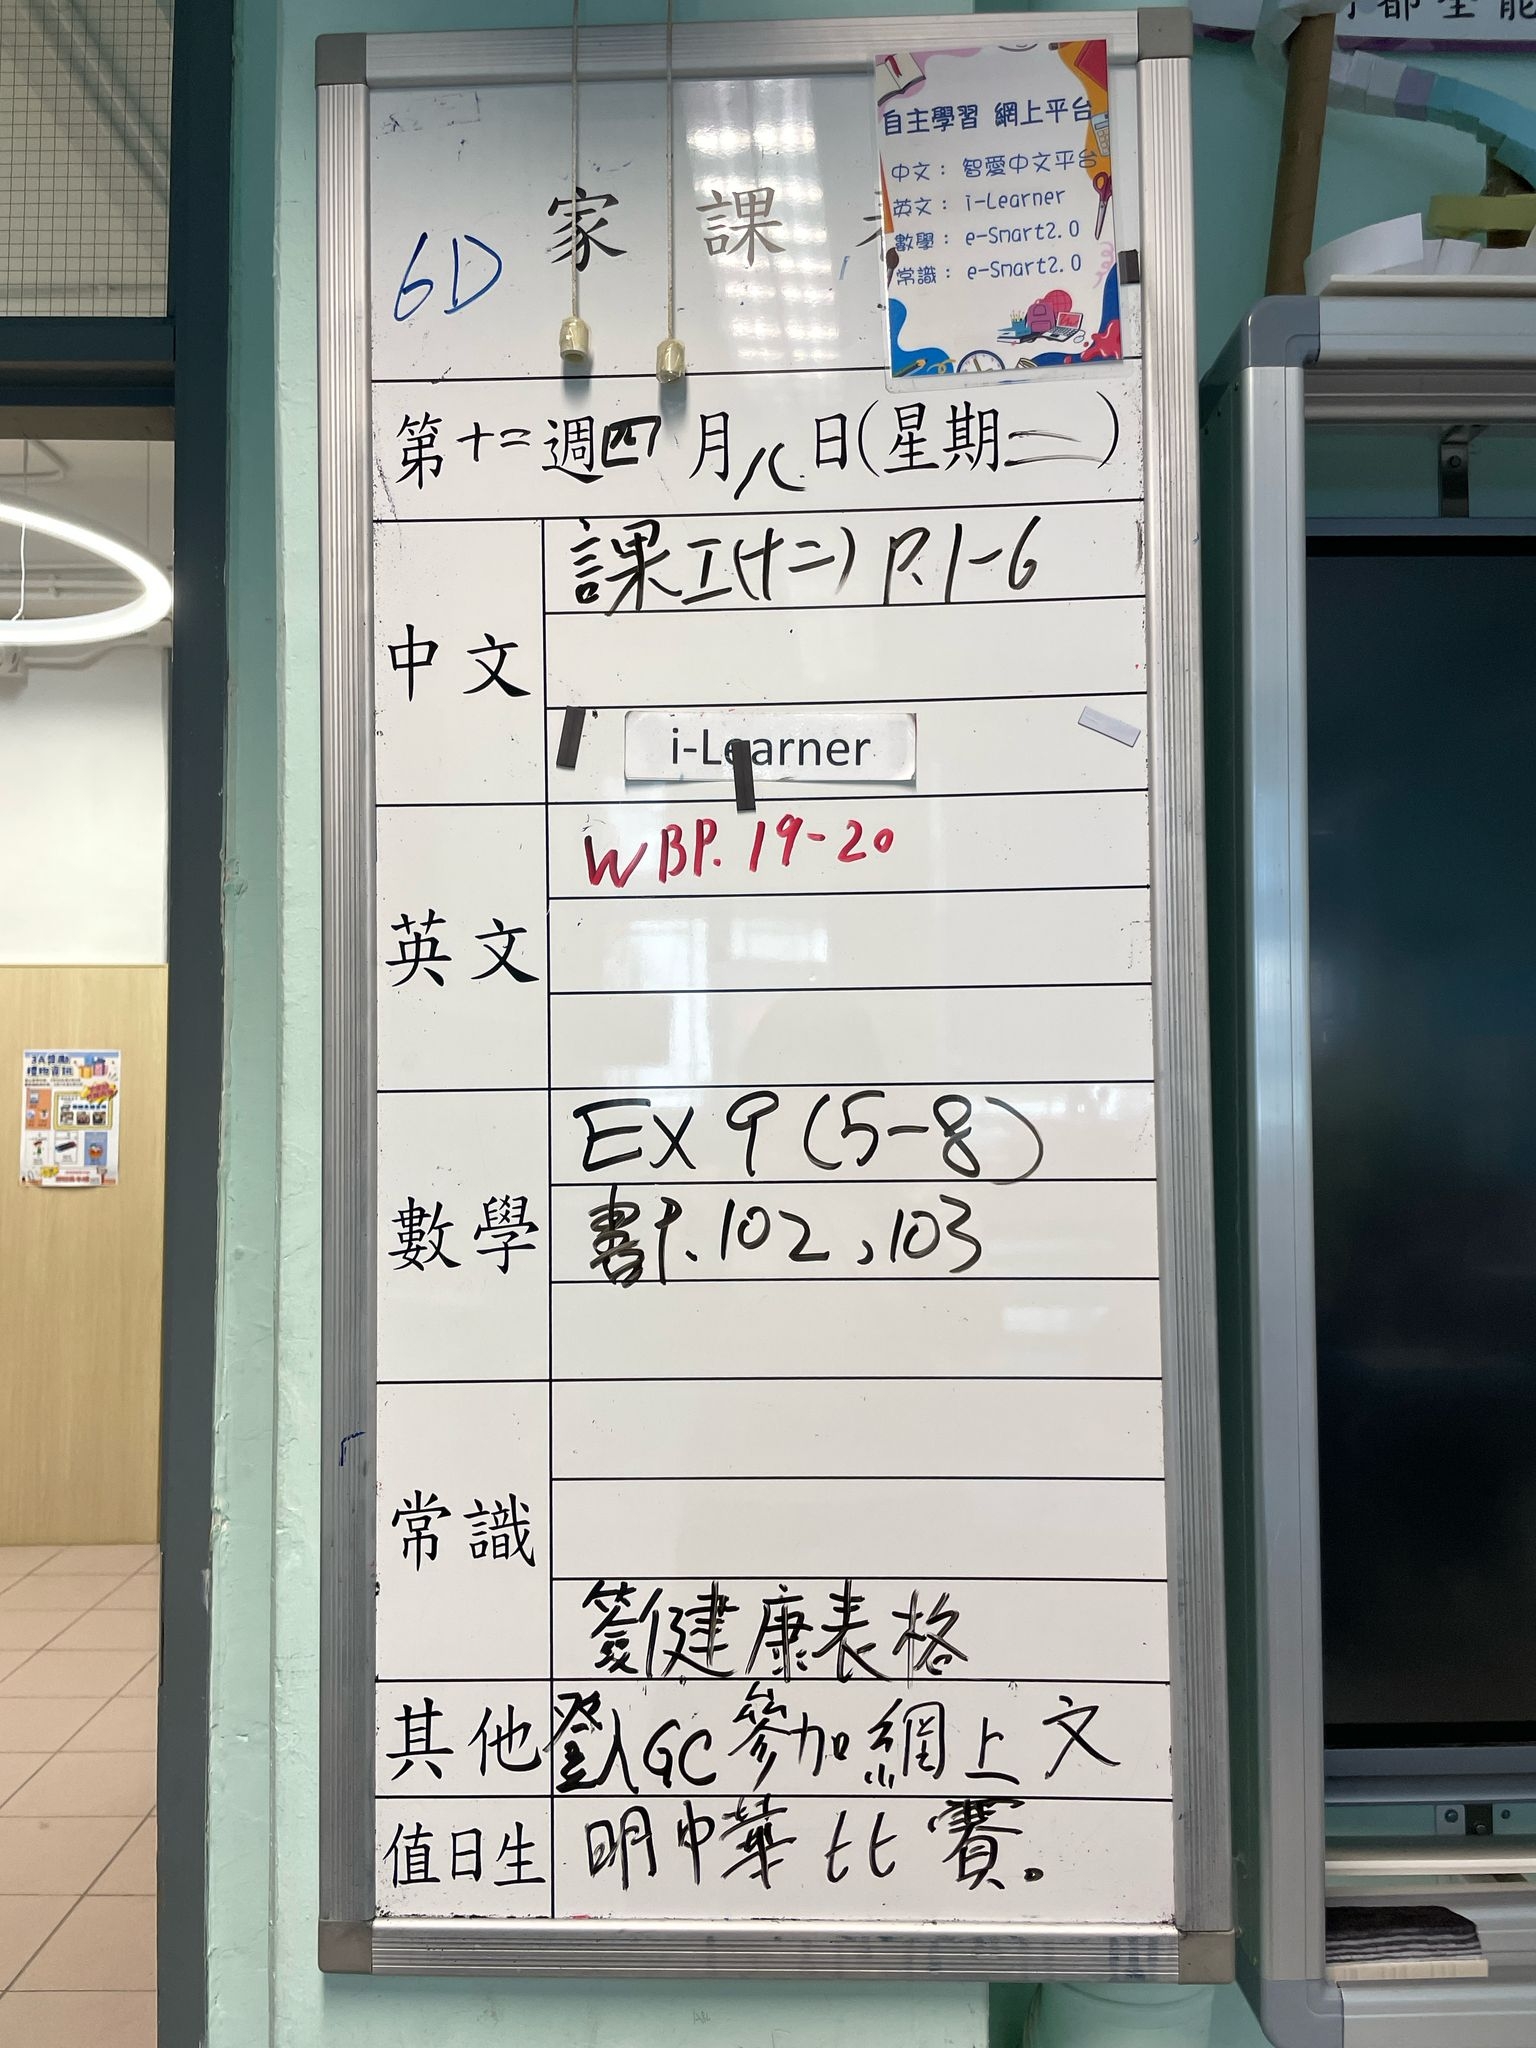 家課
6D
自主學習 網上平台
中文： 智愛中文平台
英文： i-Learner
數學： e-Smart2.0
常識： e-Smart2.0
第十二週四月八日(星期二)
中文
課工(十二) P.1-6
i-Learner
英文
WB P. 19-20
數學
EX 9 (5-8)
書P. 102、103
常識
簽健康表格
其他
登入GC參加網上文
值日生
明中華比賽。